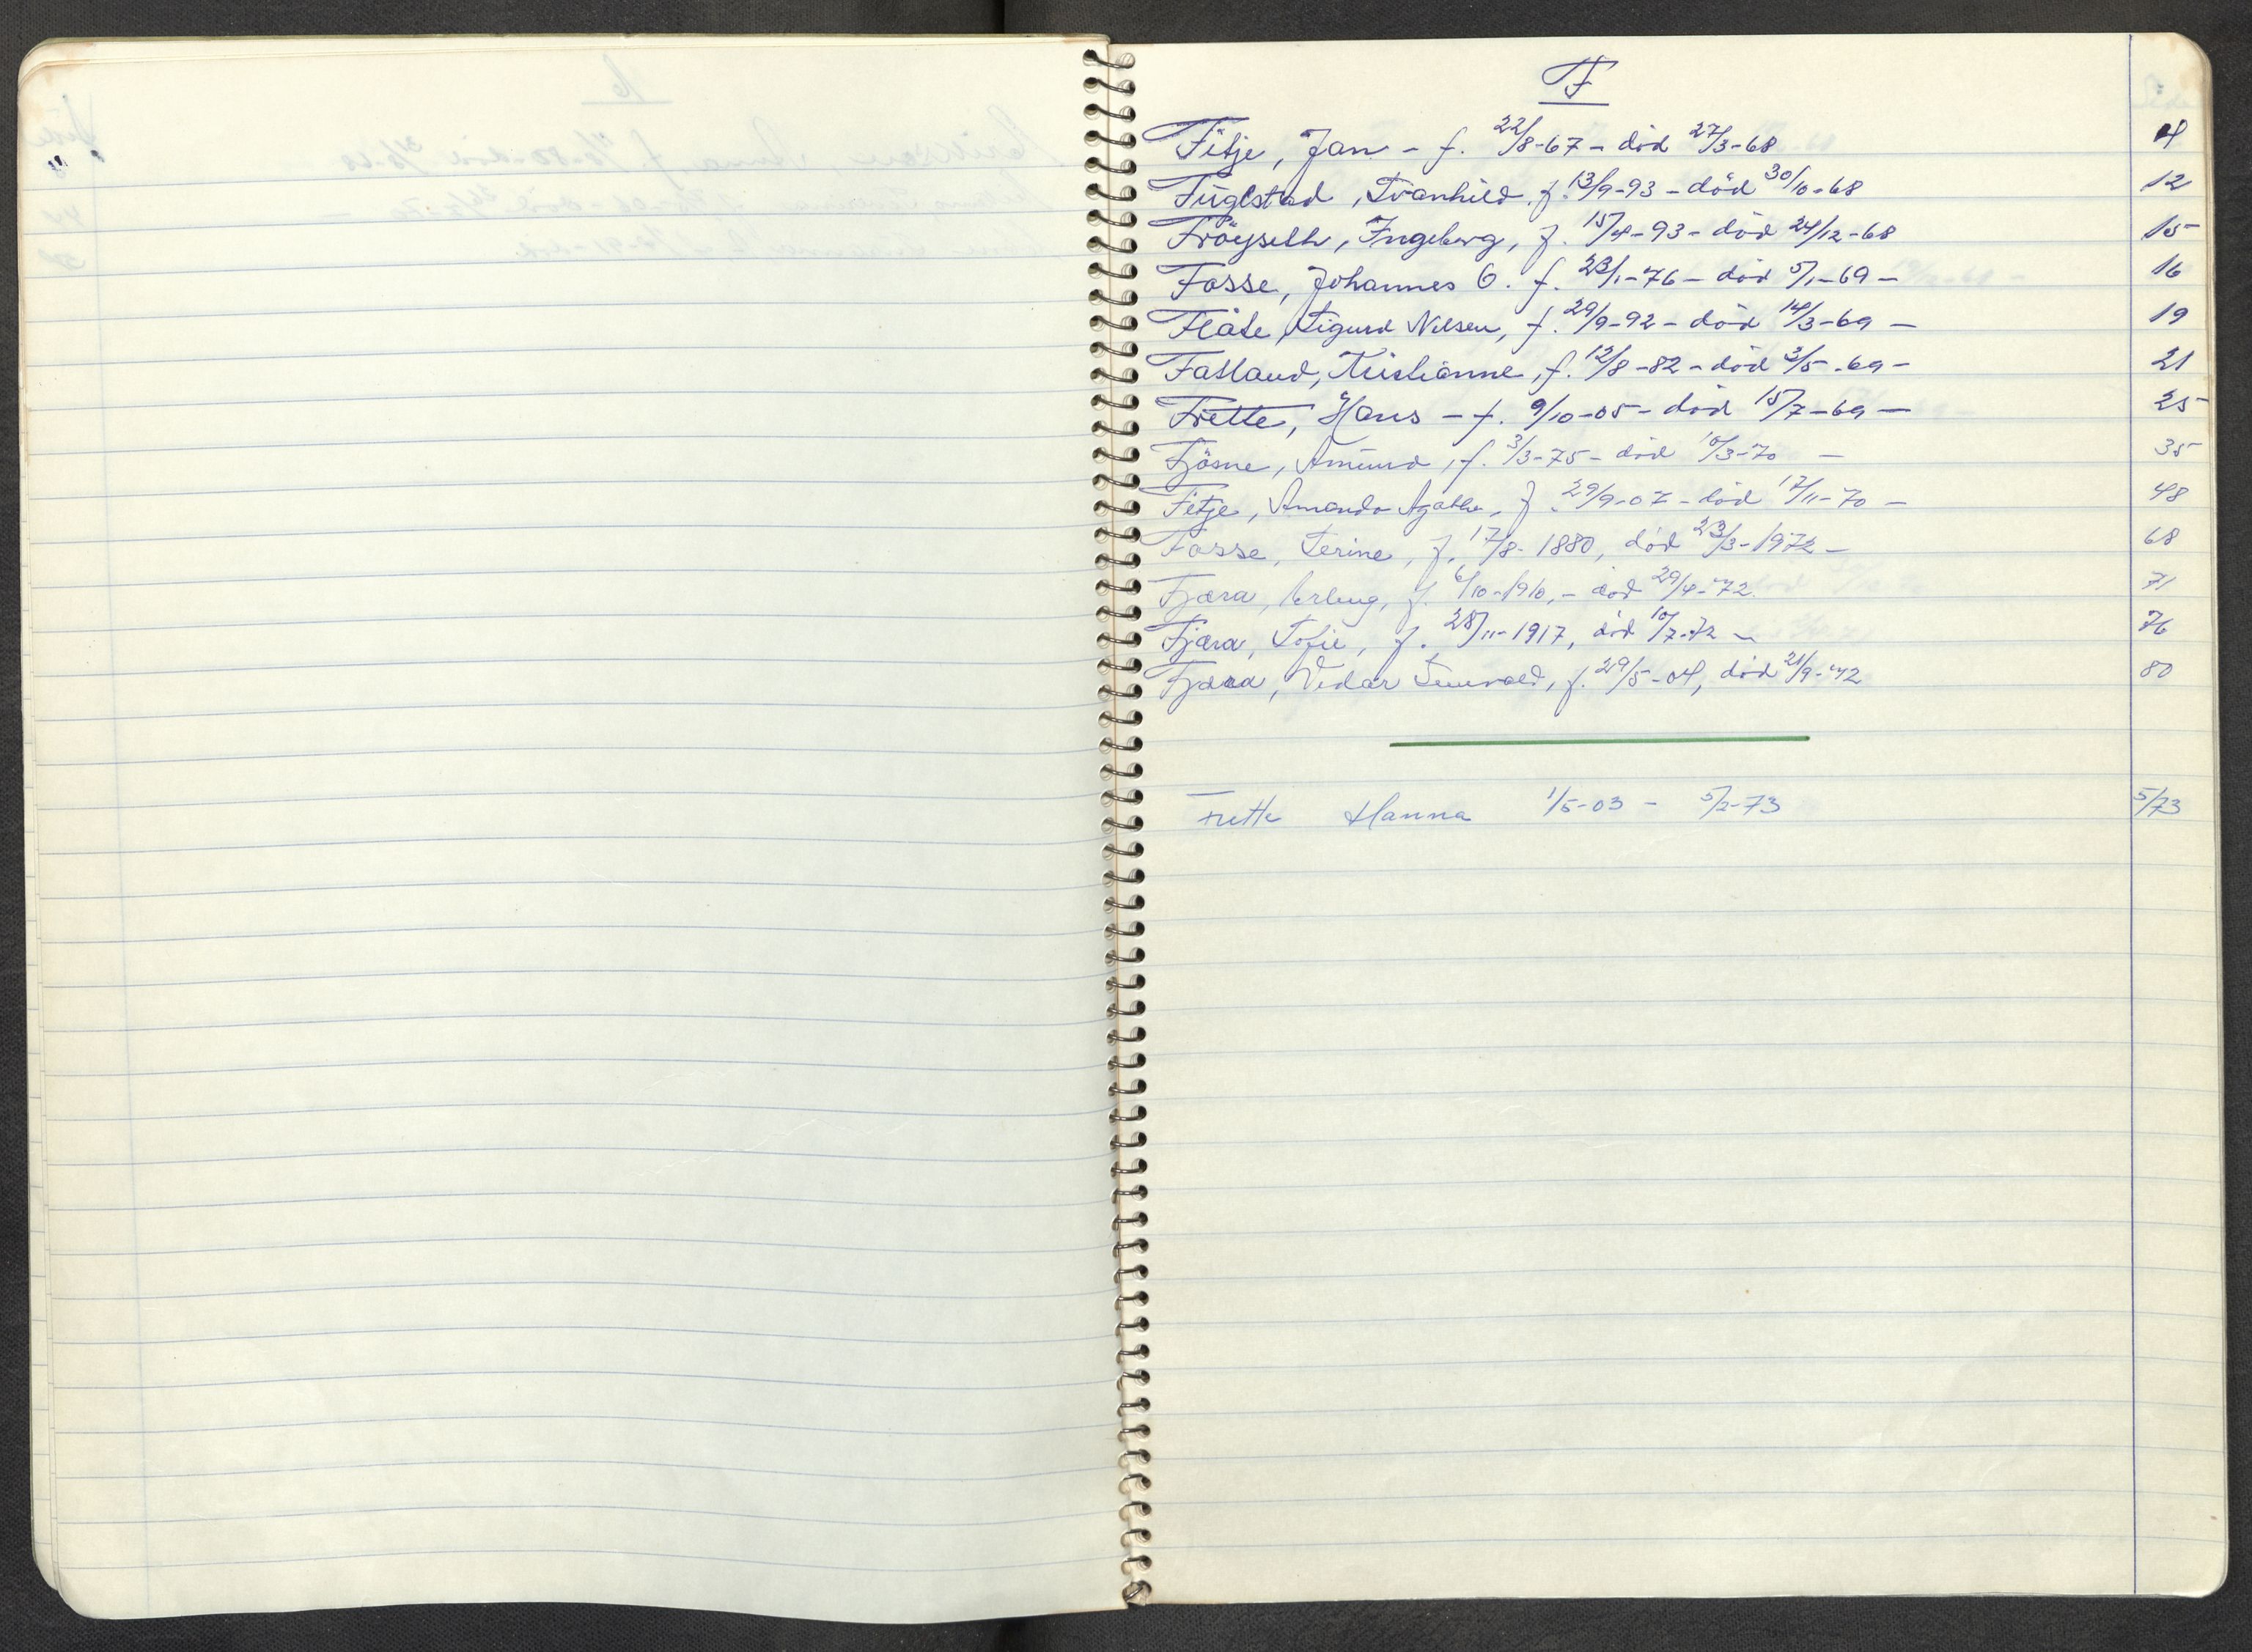 F
Fitje, Jan - f. 22/8-67 - död 27/3-68 4
Fuglestad, Svanhild, f. 13/9-93 - död 30/10-68 12
Fröyseth, Ingeborg, f. 15/4-93 - död 24/12-68 15
Fosse, Johannes O. f. 23/1-76 - död 5/1-69 - 16
Flåte, Sigurd Nilsen, f. 29/9-92 - död 14/3-69 - 19
Fatland, Kristianne, f. 12/8-82 - död 3/5-69 - 21
Frette, Hans - f. 9/10-05 - död 15/7-69 - 25
Fjösne, Amund, f. 3/3-75 - död 10/3-70 - 35
Fitje, Amanda Agathe, f. 29/9-07 - död 17/11-70 - 48
Fosse, Serine, f. 17/8-1880, död 23/3-1972 - 68
Fjæra, Erling, f. 6/10-1910, - död 29/4-72. 71
Fjæra, Sofie, f. 28/11-1917, död 10/7-72 - 76
Fjæra, Vidar, f. 29/5-04, död 21/9-72 80
Frette Hanna 1/5-03 - 5/2-73 5/73